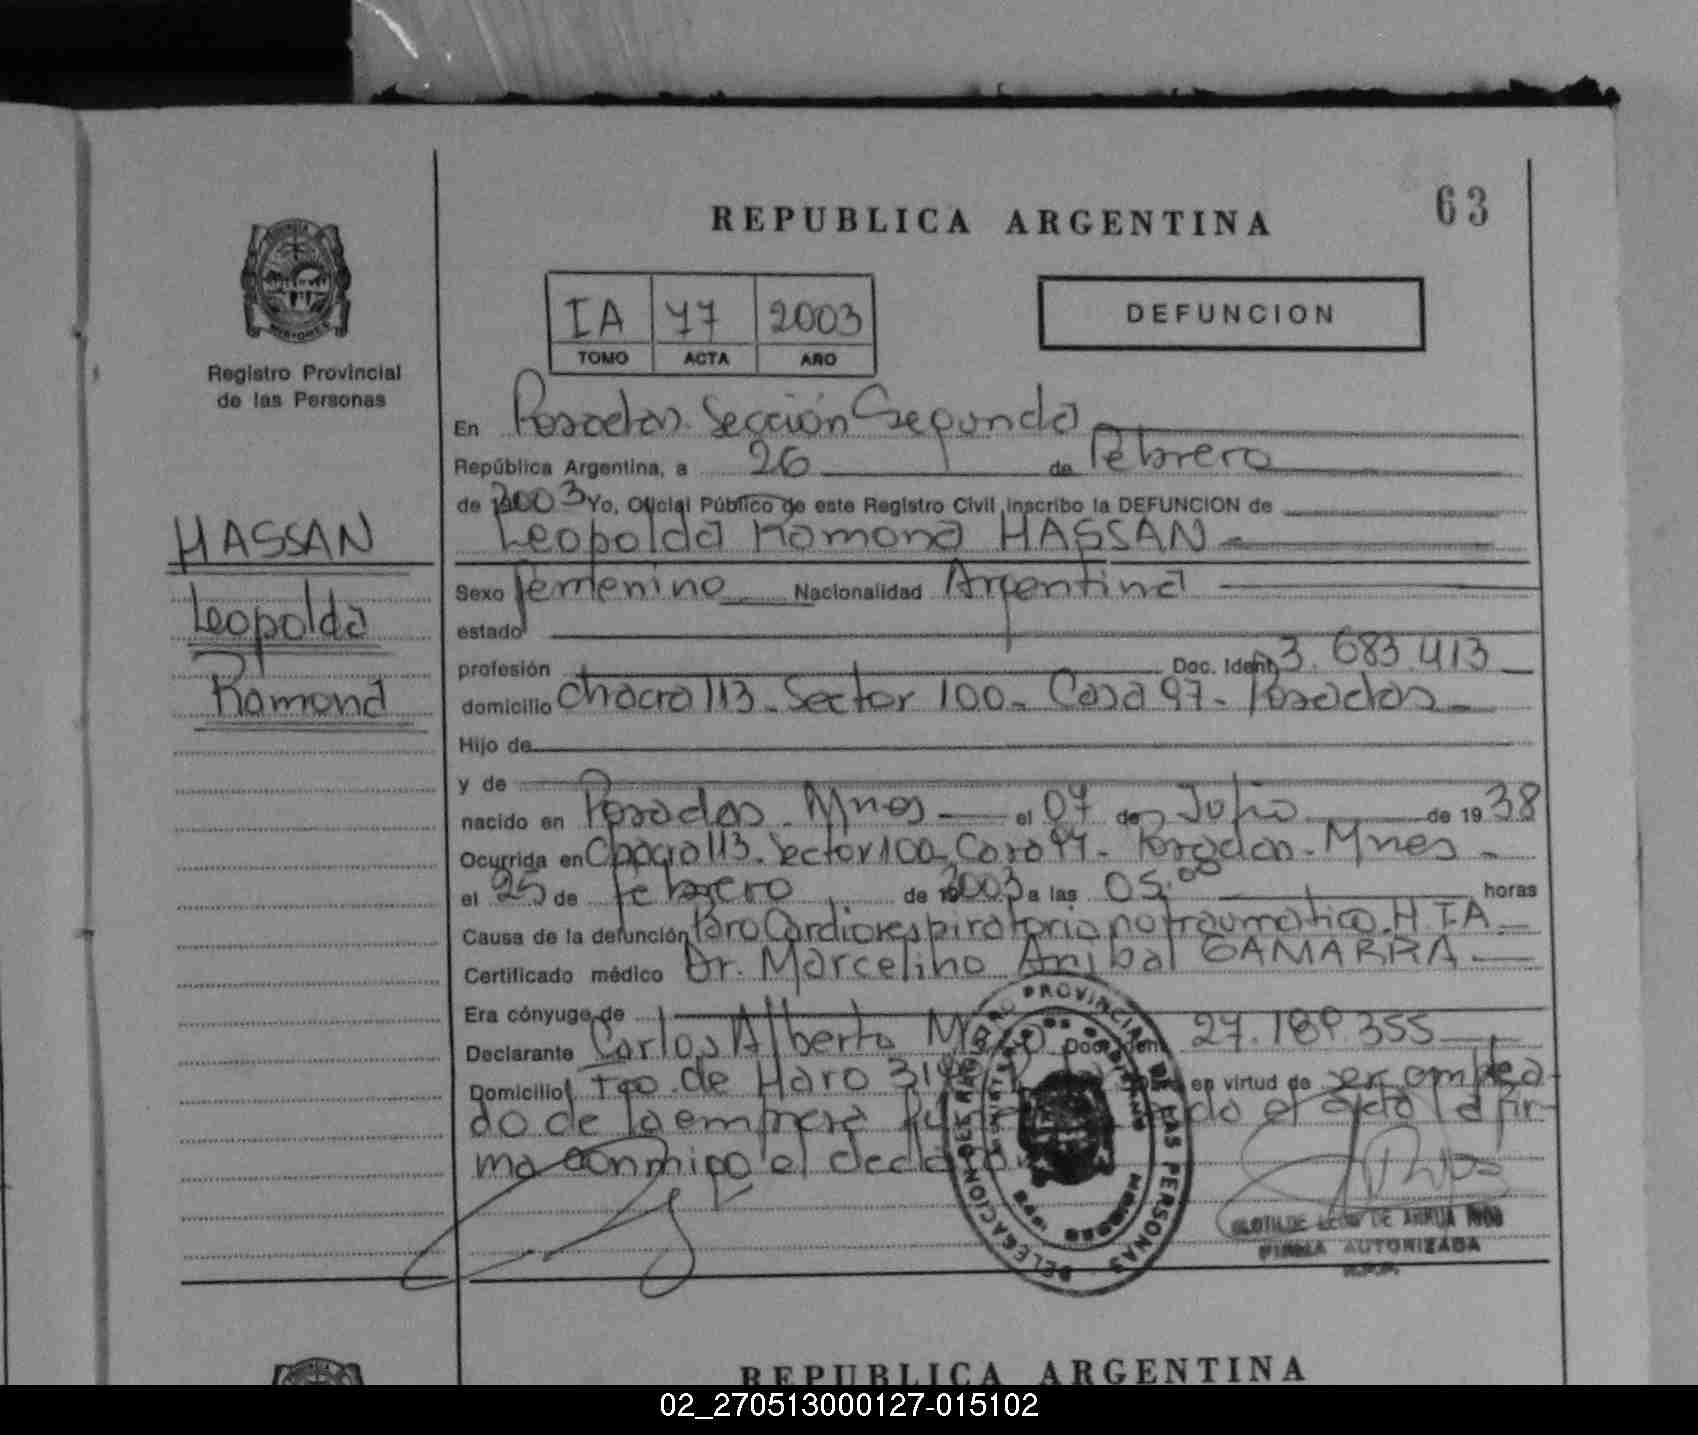 63
REPUBLICA ARGENTINA
IA 77 2003
TOMO ACTA AÑO
DEFUNCION
Registro Provincial
de las Personas
HASSAN
Leopolda
Ramona
En Posadas. Sección Segunda
República Argentina, a 26 de Febrero
de 2003 Yo, Oficial Público de este Registro Civil inscribo la DEFUNCION de
Leopolda Ramona HASSAN
Sexo femenino Nacionalidad Argentina
estado
profesión Doc. Ident. 3.683.413
domicilio Chacra 113 - Sector 100 - Casa 97 - Posadas
Hijo de
y de
nacido en Posadas - Mnes el 07 de Julio de 1938
Ocurrida en Chacra 113 - Sector 100 - Casa 97 - Posadas - Mnes
el 25 de febrero de 2003 a las 05.00 horas
Causa de la defunción Paro Cardiorespiratorio no traumatico. H.I.A.
Certificado médico Dr. Marcelino Anibal GAMARRA
Era cónyuge de
Declarante Carlos Alberto Doc. Ident. 27.189.355
Domicilio Tco. de Haro en virtud de ser emplea-
do de la empresa el acta la fir-
ma conmigo el
DELEGACION DEL REGISTRO PROVINCIAL DE LAS PERSONAS
CLOTILDE DE
FIRMA AUTORIZADA
REPUBLICA ARGENTINA
02_270513000127-015102